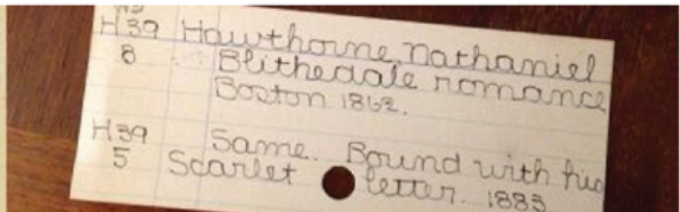 H39 Hawthorne, Nathaniel
8 Blithedale romance
Boston 1862.
H39 Same. Bound with his
5 Scarlet letter. 1883